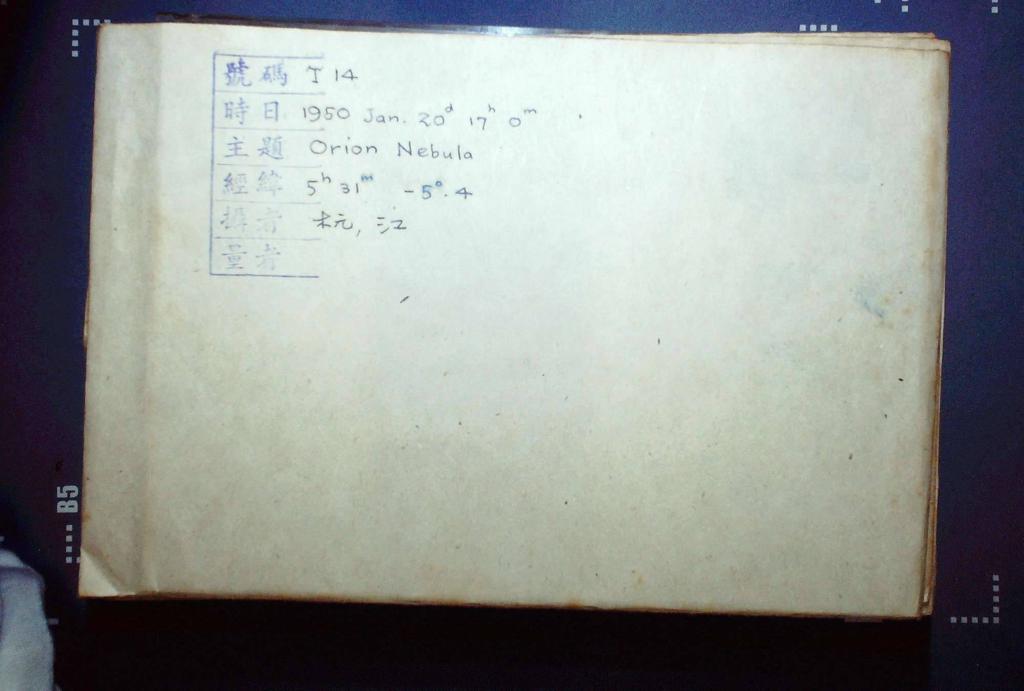 號碼 I 14
時日 1950 Jan. 20ᵈ 17ʰ 0ᵐ
主題 Orion Nebula
經緯 5ʰ 31ᵐ -5°.4
攝者 沅, 江
量者
B5